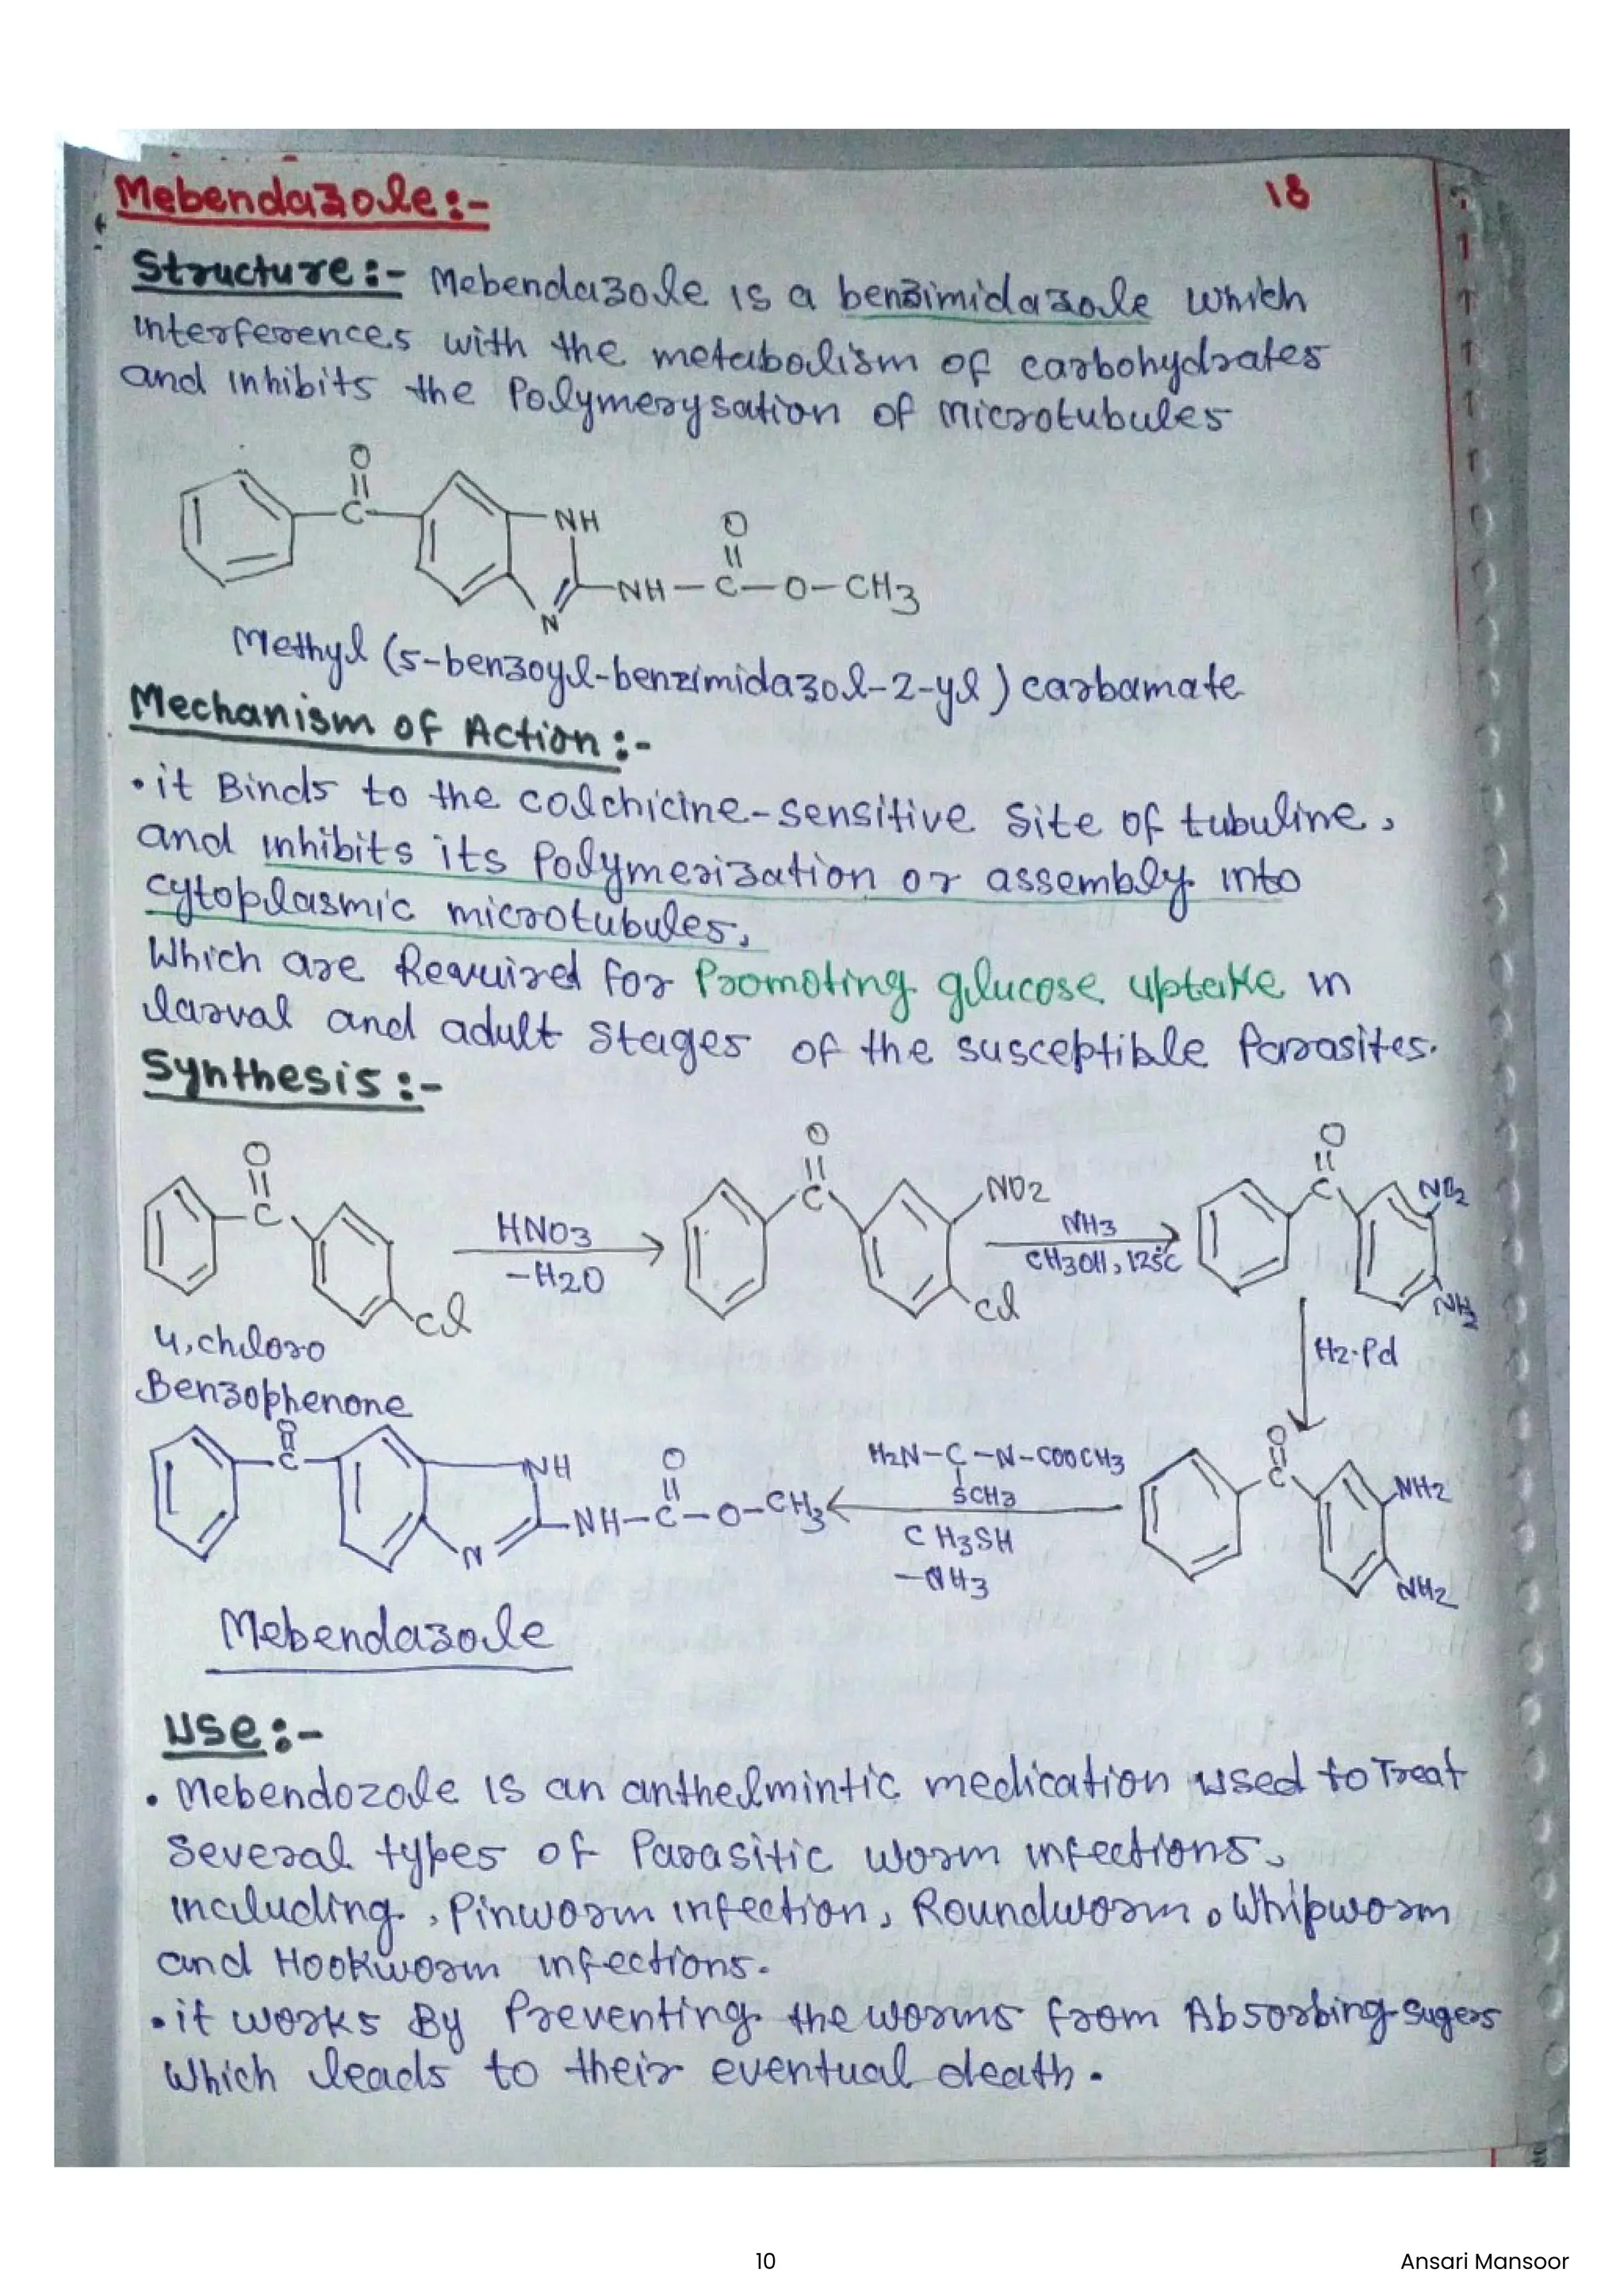 Mebendazole:-
18
Structure:- Mebendazole is a benzimidazole which
interferences with the metabolism of carbohydrates
and inhibits the Polymerysation of microtubules
O
C
NH
O
NH-C-O-CH3
N
Methyl (5-benzoyl-benzimidazol-2-yl) carbamate
Mechanism of Action:-
• it Binds to the colchicine-sensitive site of tubuline,
and inhibits its Polymerization or assembly into
cytoplasmic microtubules,
Which are Required for Promoting glucose uptake in
larval and adult stages of the susceptible Parasites.
Synthesis:-
O
C
Cl
HNO3
-H2O
O
C
NO2
Cl
NH3
CH3OH, 125°C
O
C
NO2
NH2
4, chloro
Benzophenone
H2·Pd
O
C
NH
O
NH-C-O-CH3
N
H2N-C-N-COOCH3
SCH3
CH3SH
-NH3
O
C
NH2
NH2
Mebendazole
Use:-
• Mebendozole is an anthelmintic medication used to Treat
Several types of Parasitic worm infections,
including, Pinworm infection, Roundworm, Whipworm
and Hookworm infections.
• it works By Preventing the worms from Absorbing sugers
Which leads to their eventual death.
10
Ansari Mansoor